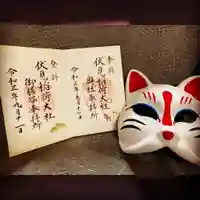 奉拝
伏見稲荷大社
奥社奉拝所
令和三年九月十一日
伏見稲荷大社
御膳谷奉拝所
令和三年九月十一日